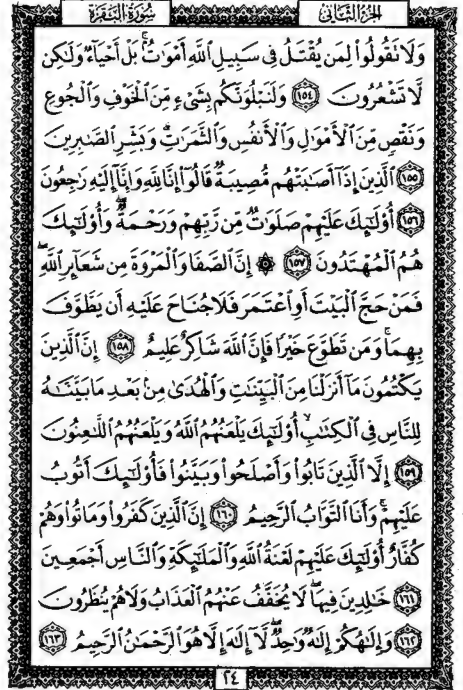 سُورَةُ البَقَرَةِ الجُزءُ الثَّانِي
وَلَا تَقُولُوا۟ لِمَن يُقْتَلُ فِى سَبِيلِ ٱللَّهِ أَمْوَٰتٌۢ ۚ بَلْ أَحْيَآءٌ وَلَٰكِن
لَّا تَشْعُرُونَ ١٥٤ وَلَنَبْلُوَنَّكُم بِشَىْءٍ مِّنَ ٱلْخَوْفِ وَٱلْجُوعِ
وَنَقْصٍ مِّنَ ٱلْأَمْوَٰلِ وَٱلْأَنفُسِ وَٱلثَّمَرَٰتِ ۗ وَبَشِّرِ ٱلصَّٰبِرِينَ
١٥٥ ٱلَّذِينَ إِذَآ أَصَٰبَتْهُم مُّصِيبَةٌ قَالُوٓا۟ إِنَّا لِلَّهِ وَإِنَّآ إِلَيْهِ رَٰجِعُونَ
١٥٦ أُو۟لَٰٓئِكَ عَلَيْهِمْ صَلَوَٰتٌ مِّن رَّبِّهِمْ وَرَحْمَةٌ ۖ وَأُو۟لَٰٓئِكَ
هُمُ ٱلْمُهْتَدُونَ ١٥٧ ۞ إِنَّ ٱلصَّفَا وَٱلْمَرْوَةَ مِن شَعَآئِرِ ٱللَّهِ ۖ
فَمَنْ حَجَّ ٱلْبَيْتَ أَوِ ٱعْتَمَرَ فَلَا جُنَاحَ عَلَيْهِ أَن يَطَّوَّفَ
بِهِمَا ۚ وَمَن تَطَوَّعَ خَيْرًا فَإِنَّ ٱللَّهَ شَاكِرٌ عَلِيمٌ ١٥٨ إِنَّ ٱلَّذِينَ
يَكْتُمُونَ مَآ أَنزَلْنَا مِنَ ٱلْبَيِّنَٰتِ وَٱلْهُدَىٰ مِنۢ بَعْدِ مَا بَيَّنَّٰهُ
لِلنَّاسِ فِى ٱلْكِتَٰبِ ۙ أُو۟لَٰٓئِكَ يَلْعَنُهُمُ ٱللَّهُ وَيَلْعَنُهُمُ ٱللَّٰعِنُونَ
١٥٩ إِلَّا ٱلَّذِينَ تَابُوا۟ وَأَصْلَحُوا۟ وَبَيَّنُوا۟ فَأُو۟لَٰٓئِكَ أَتُوبُ
عَلَيْهِمْ ۚ وَأَنَا ٱلتَّوَّابُ ٱلرَّحِيمُ ١٦٠ إِنَّ ٱلَّذِينَ كَفَرُوا۟ وَمَاتُوا۟ وَهُمْ
كُفَّارٌ أُو۟لَٰٓئِكَ عَلَيْهِمْ لَعْنَةُ ٱللَّهِ وَٱلْمَلَٰٓئِكَةِ وَٱلنَّاسِ أَجْمَعِينَ
١٦١ خَٰلِدِينَ فِيهَا ۖ لَا يُخَفَّفُ عَنْهُمُ ٱلْعَذَابُ وَلَا هُمْ يُنظَرُونَ
١٦٢ وَإِلَٰهُكُمْ إِلَٰهٌ وَٰحِدٌ ۖ لَّآ إِلَٰهَ إِلَّا هُوَ ٱلرَّحْمَٰنُ ٱلرَّحِيمُ ١٦٣
٢٤